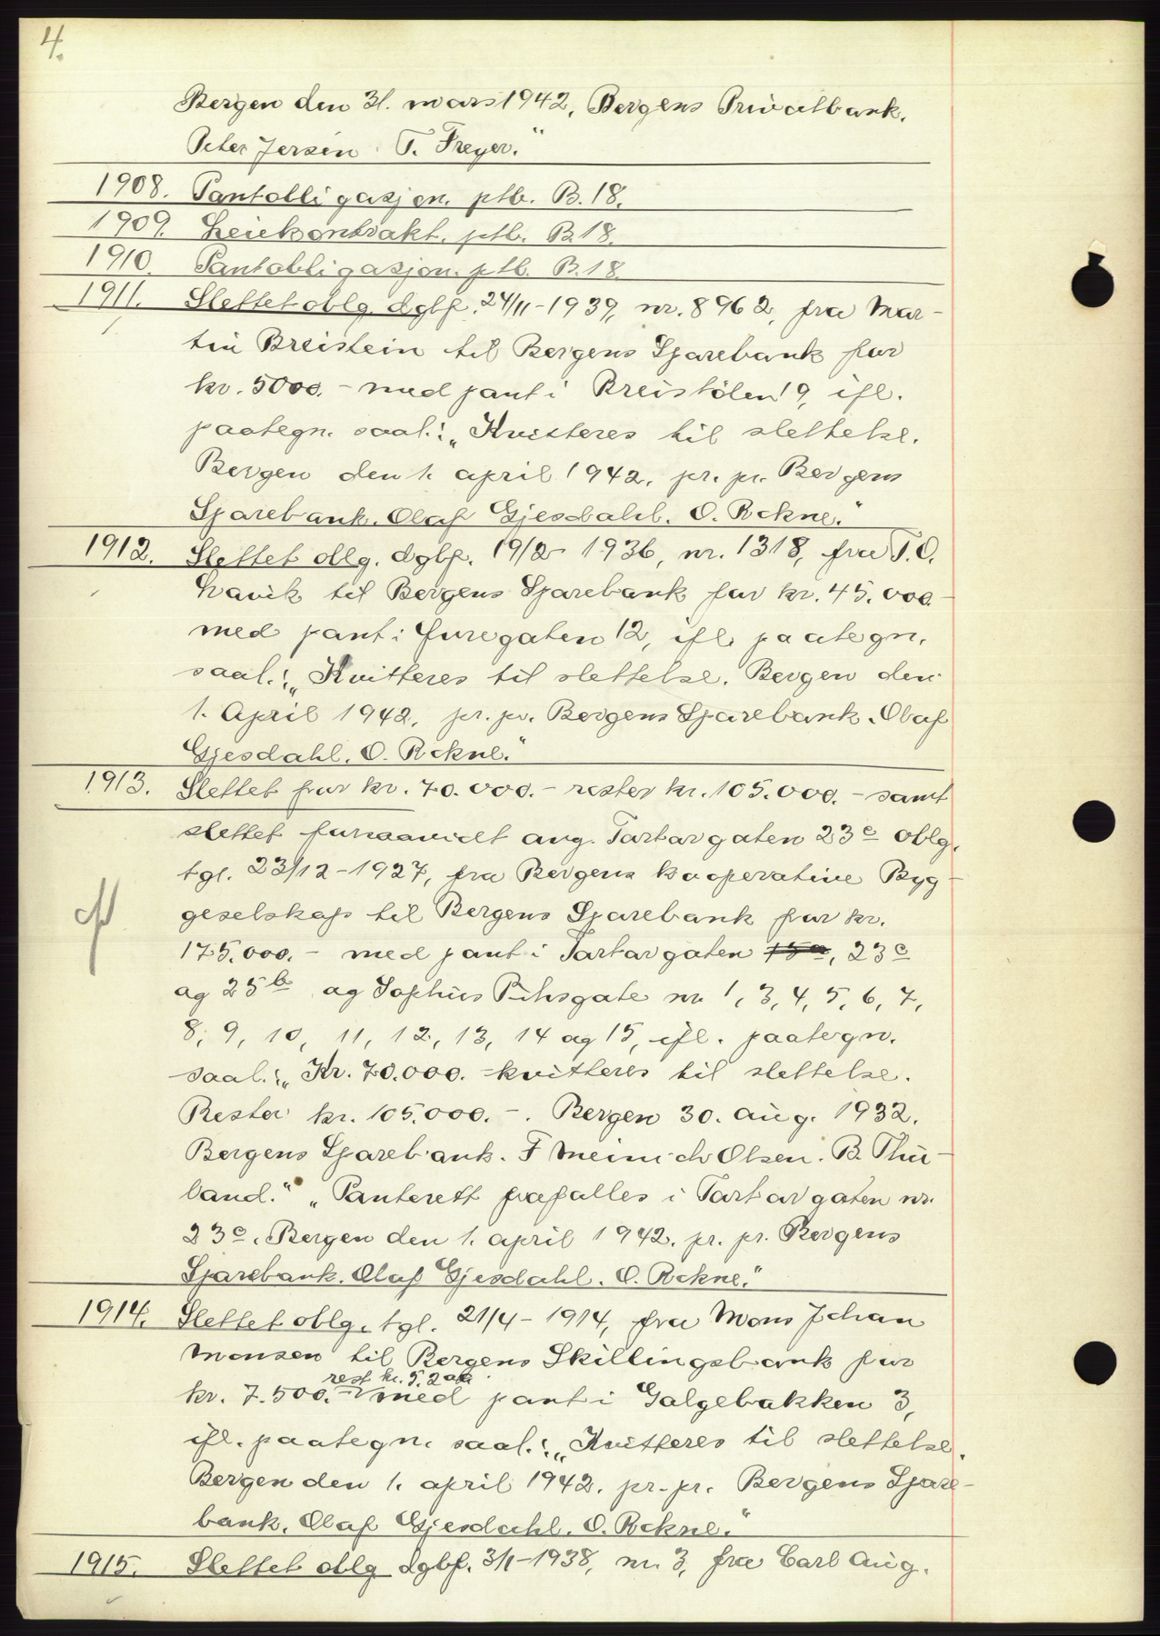 4.
Bergen den 31. mars 1942, Bergens Privatbank.
Peter Jersin T. Freyer."
1908. Pantobligasjon. ptb. B.18.
1909. Leiekontrakt. ptb. B.18.
1910. Pantobligasjon. ptb. B.18.
1911. Slettet oblg. dgbf. 24/11-1939, nr. 8962, fra Mar-
tin Breistein til Bergens Sparebank for
kr. 5000.- med pant i Breistölen 19, ifl.
paategn. saal.: „Kvitteres til slettelse.
Bergen den 1. april 1942. pr. pr. Bergens
Sparebank. Olaf Gjesdahl. O. Rokne."
1912. Slettet oblg. dgbf. 19/2-1936, nr. 1318, fra T. O.
Lavik til Bergens Sparebank for kr. 45.000.-
med pant i Furegaten 12, ifl. paategn.
saal.: „Kvitteres til slettelse. Bergen den
1. April 1942. pr. pr. Bergens Sparebank. Olaf
Gjesdahl. O. Rokne."
1913. Slettet for kr. 70.000.- rester kr. 105.000.- samt
slettet forsaavidt ang. Tartargaten 23c oblg.
tgl. 23/12-1927, fra Bergens kooperative Byg-
geselskap til Bergens Sparebank for kr.
175.000.- med pant i Tartargaten 15a, 23c
og 25b og Sophus Pihsgate nr. 1, 3, 4, 5, 6, 7,
8, 9, 10, 11, 12, 13, 14 og 15, ifl. paategn.
saal.: „Kr. 70.000.- kvitteres til slettelse.
Rester kr. 105.000.-. Bergen 30. aug. 1932.
Bergens Sparebank. F Meinich Olsen. B. Thu-
land." „Panterett frafalles i Tartargaten nr.
23c. Bergen den 1. april 1942. pr. pr. Bergens
Sparebank. Olaf Gjesdahl. O. Rokne."
1914. Slettet oblg. tgl. 21/4-1914, fra Mons Johan
Monsen til Bergens Skillingsbank for
rest kr. 5.200
kr. 7.500.- med pant i Galgebakken 3,
ifl. paategn. saal.: „Kvitteres til slettelse.
Bergen den 1. april 1942. pr. pr. Bergens Spare-
bank. Olaf Gjesdahl. O. Rokne."
1915. Slettet oblg dgbf. 3/1-1938, nr. 3, fra Carl Aug.